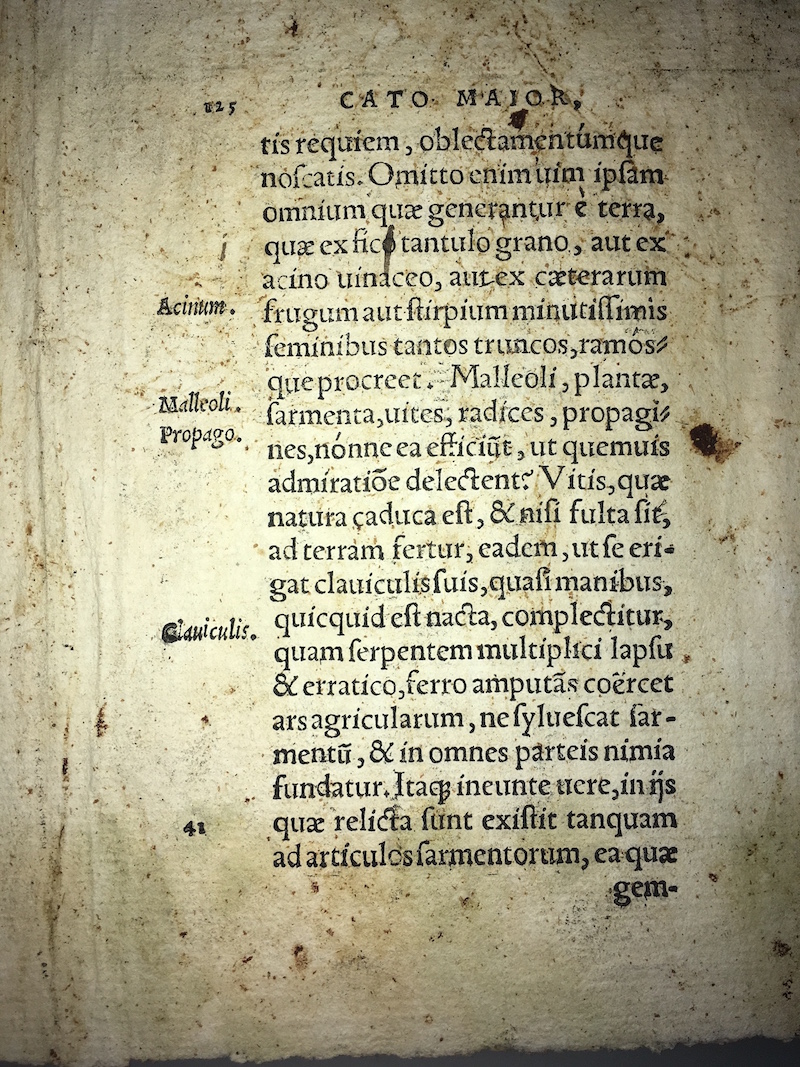 125 CATO MAIOR,
tis requiem, oblectamentúmque
noſcatis. Omitto enim uim ipſam
omnium quæ generantur è terra,
quæ ex fici tantulo grano, aut ex
acino uinaceo, aut ex cæterarum
Acinum.
frugum aut ſtirpium minutiſſimis
ſeminibus tantos truncos, ramós⸗
que procreet. Malleoli, plantæ,
Malleoli.
ſarmenta, uites, radíces, propagi⸗
Propago.
nes, nónne ea efficiũt, ut quemuis
admiratiõe delectent? Vitis, quæ
natura caduca eſt, & niſi fulta ſit,
ad terram fertur, eadem, ut ſe eri-
gat clauiculis ſuis, quaſi manibus,
quicquid eſt nacta, complectitur,
Clauiculis.
quam ſerpentem multiplici lapſu
& erratico, ferro amputãs coërcet
ars agricularum, ne ſylueſcat ſar-
mentũ, & in omnes parteis nimia
fundatur. Itaq; ineunte uere, in ijs
41
quæ relicta ſunt exiſtit tanquam
ad articulos ſarmentorum, ea quæ
gem-